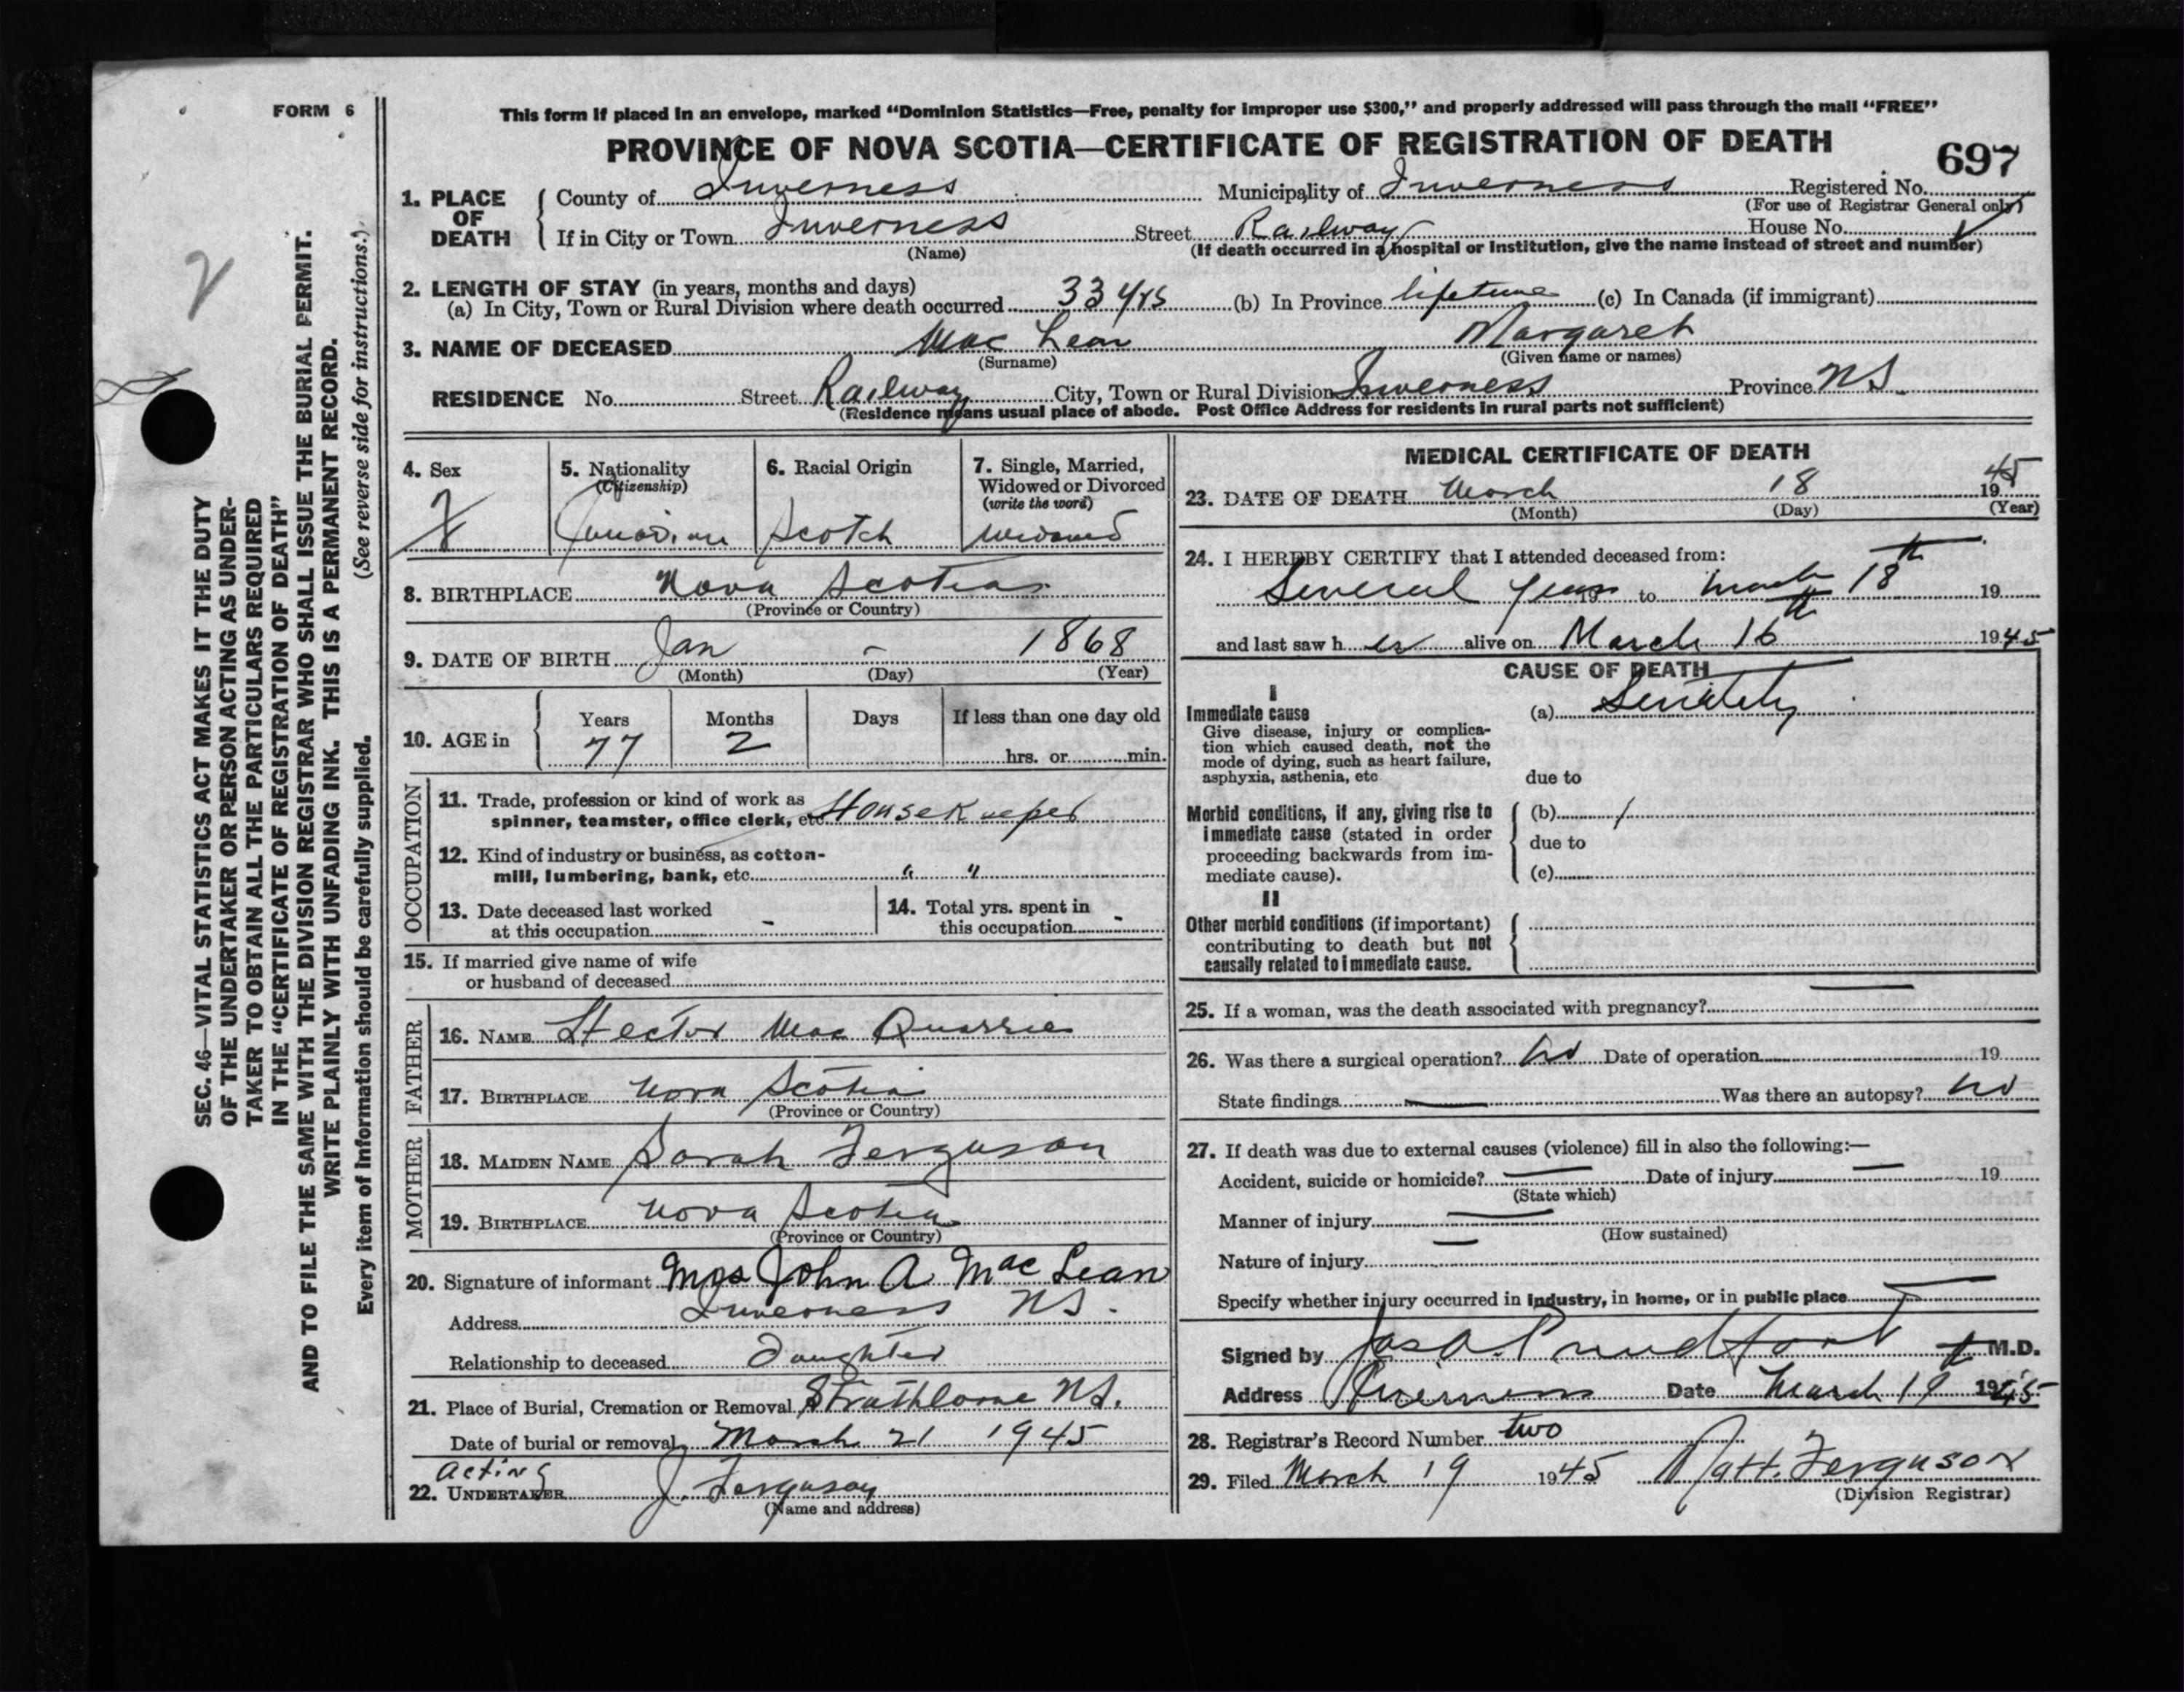 FORM 6
This form if placed in an envelope, marked "Dominion Statistics—Free, penalty for improper use $300," and properly addressed will pass through the mail "FREE"
PROVINCE OF NOVA SCOTIA—CERTIFICATE OF REGISTRATION OF DEATH
697
1. PLACE OF DEATH
County of Inverness Municipality of Inverness Registered No.
(For use of Registrar General only)
If in City or Town Inverness Street Railway House No.
(Name) (If death occurred in a hospital or institution, give the name instead of street and number)
2. LENGTH OF STAY (in years, months and days)
(a) In City, Town or Rural Division where death occurred 33 yrs (b) In Province lifetime (c) In Canada (if immigrant)
3. NAME OF DECEASED Mac Lean Margaret
(Surname) (Given name or names)
RESIDENCE No. Street Railway City, Town or Rural Division Inverness Province NS
(Residence means usual place of abode. Post Office Address for residents in rural parts not sufficient)
4. Sex
F
5. Nationality
(Citizenship)
Canadian
6. Racial Origin
Scotch
7. Single, Married,
Widowed or Divorced
(write the word)
Widowed
8. BIRTHPLACE Nova Scotia
(Province or Country)
9. DATE OF BIRTH Jan - 1868
(Month) (Day) (Year)
10. AGE in
Years Months Days If less than one day old
77 2 hrs. or min.
OCCUPATION
11. Trade, profession or kind of work as
spinner, teamster, office clerk, etc. Housekeeper
12. Kind of industry or business, as cotton-
mill, lumbering, bank, etc. " "
13. Date deceased last worked
at this occupation -
14. Total yrs. spent in
this occupation -
15. If married give name of wife
or husband of deceased
FATHER
16. NAME Hector Mac Quarrie
17. BIRTHPLACE Nova Scotia
(Province or Country)
MOTHER
18. MAIDEN NAME Sarah Ferguson
19. BIRTHPLACE Nova Scotia
(Province or Country)
20. Signature of informant Mrs John A MacLean
Address Inverness NS.
Relationship to deceased Daughter
21. Place of Burial, Cremation or Removal Strathlorne NS.
Date of burial or removal March 21 1945
Acting
22. UNDERTAKER J. Ferguson
(Name and address)
MEDICAL CERTIFICATE OF DEATH
23. DATE OF DEATH March 18 1945
(Month) (Day) (Year)
24. I HEREBY CERTIFY that I attended deceased from:
Several years 19 to March 18th 19
and last saw her alive on March 16th 1945
CAUSE OF DEATH
I
Immediate cause
Give disease, injury or complica-
tion which caused death, not the
mode of dying, such as heart failure,
asphyxia, asthenia, etc
(a) Senility
due to
Morbid conditions, if any, giving rise to
immediate cause (stated in order
proceeding backwards from im-
mediate cause).
(b) /
due to
(c)
II
Other morbid conditions (if important)
contributing to death but not
causally related to immediate cause.
25. If a woman, was the death associated with pregnancy? —
26. Was there a surgical operation? No Date of operation 19
State findings — Was there an autopsy? No
27. If death was due to external causes (violence) fill in also the following:—
Accident, suicide or homicide? — Date of injury — 19
(State which)
Manner of injury —
(How sustained)
Nature of injury —
Specify whether injury occurred in industry, in home, or in public place —
Signed by Jas A. Proudfoot M.D.
Address Inverness Date March 19 1945
28. Registrar's Record Number two
29. Filed March 19 1945 Matt. Ferguson
(Division Registrar)
2
SEC. 46—VITAL STATISTICS ACT MAKES IT THE DUTY
OF THE UNDERTAKER OR PERSON ACTING AS UNDER-
TAKER TO OBTAIN ALL THE PARTICULARS REQUIRED
IN THE "CERTIFICATE OF REGISTRATION OF DEATH"
AND TO FILE THE SAME WITH THE DIVISION REGISTRAR WHO SHALL ISSUE THE BURIAL PERMIT.
WRITE PLAINLY WITH UNFADING INK. THIS IS A PERMANENT RECORD.
Every item of information should be carefully supplied. (See reverse side for instructions.)